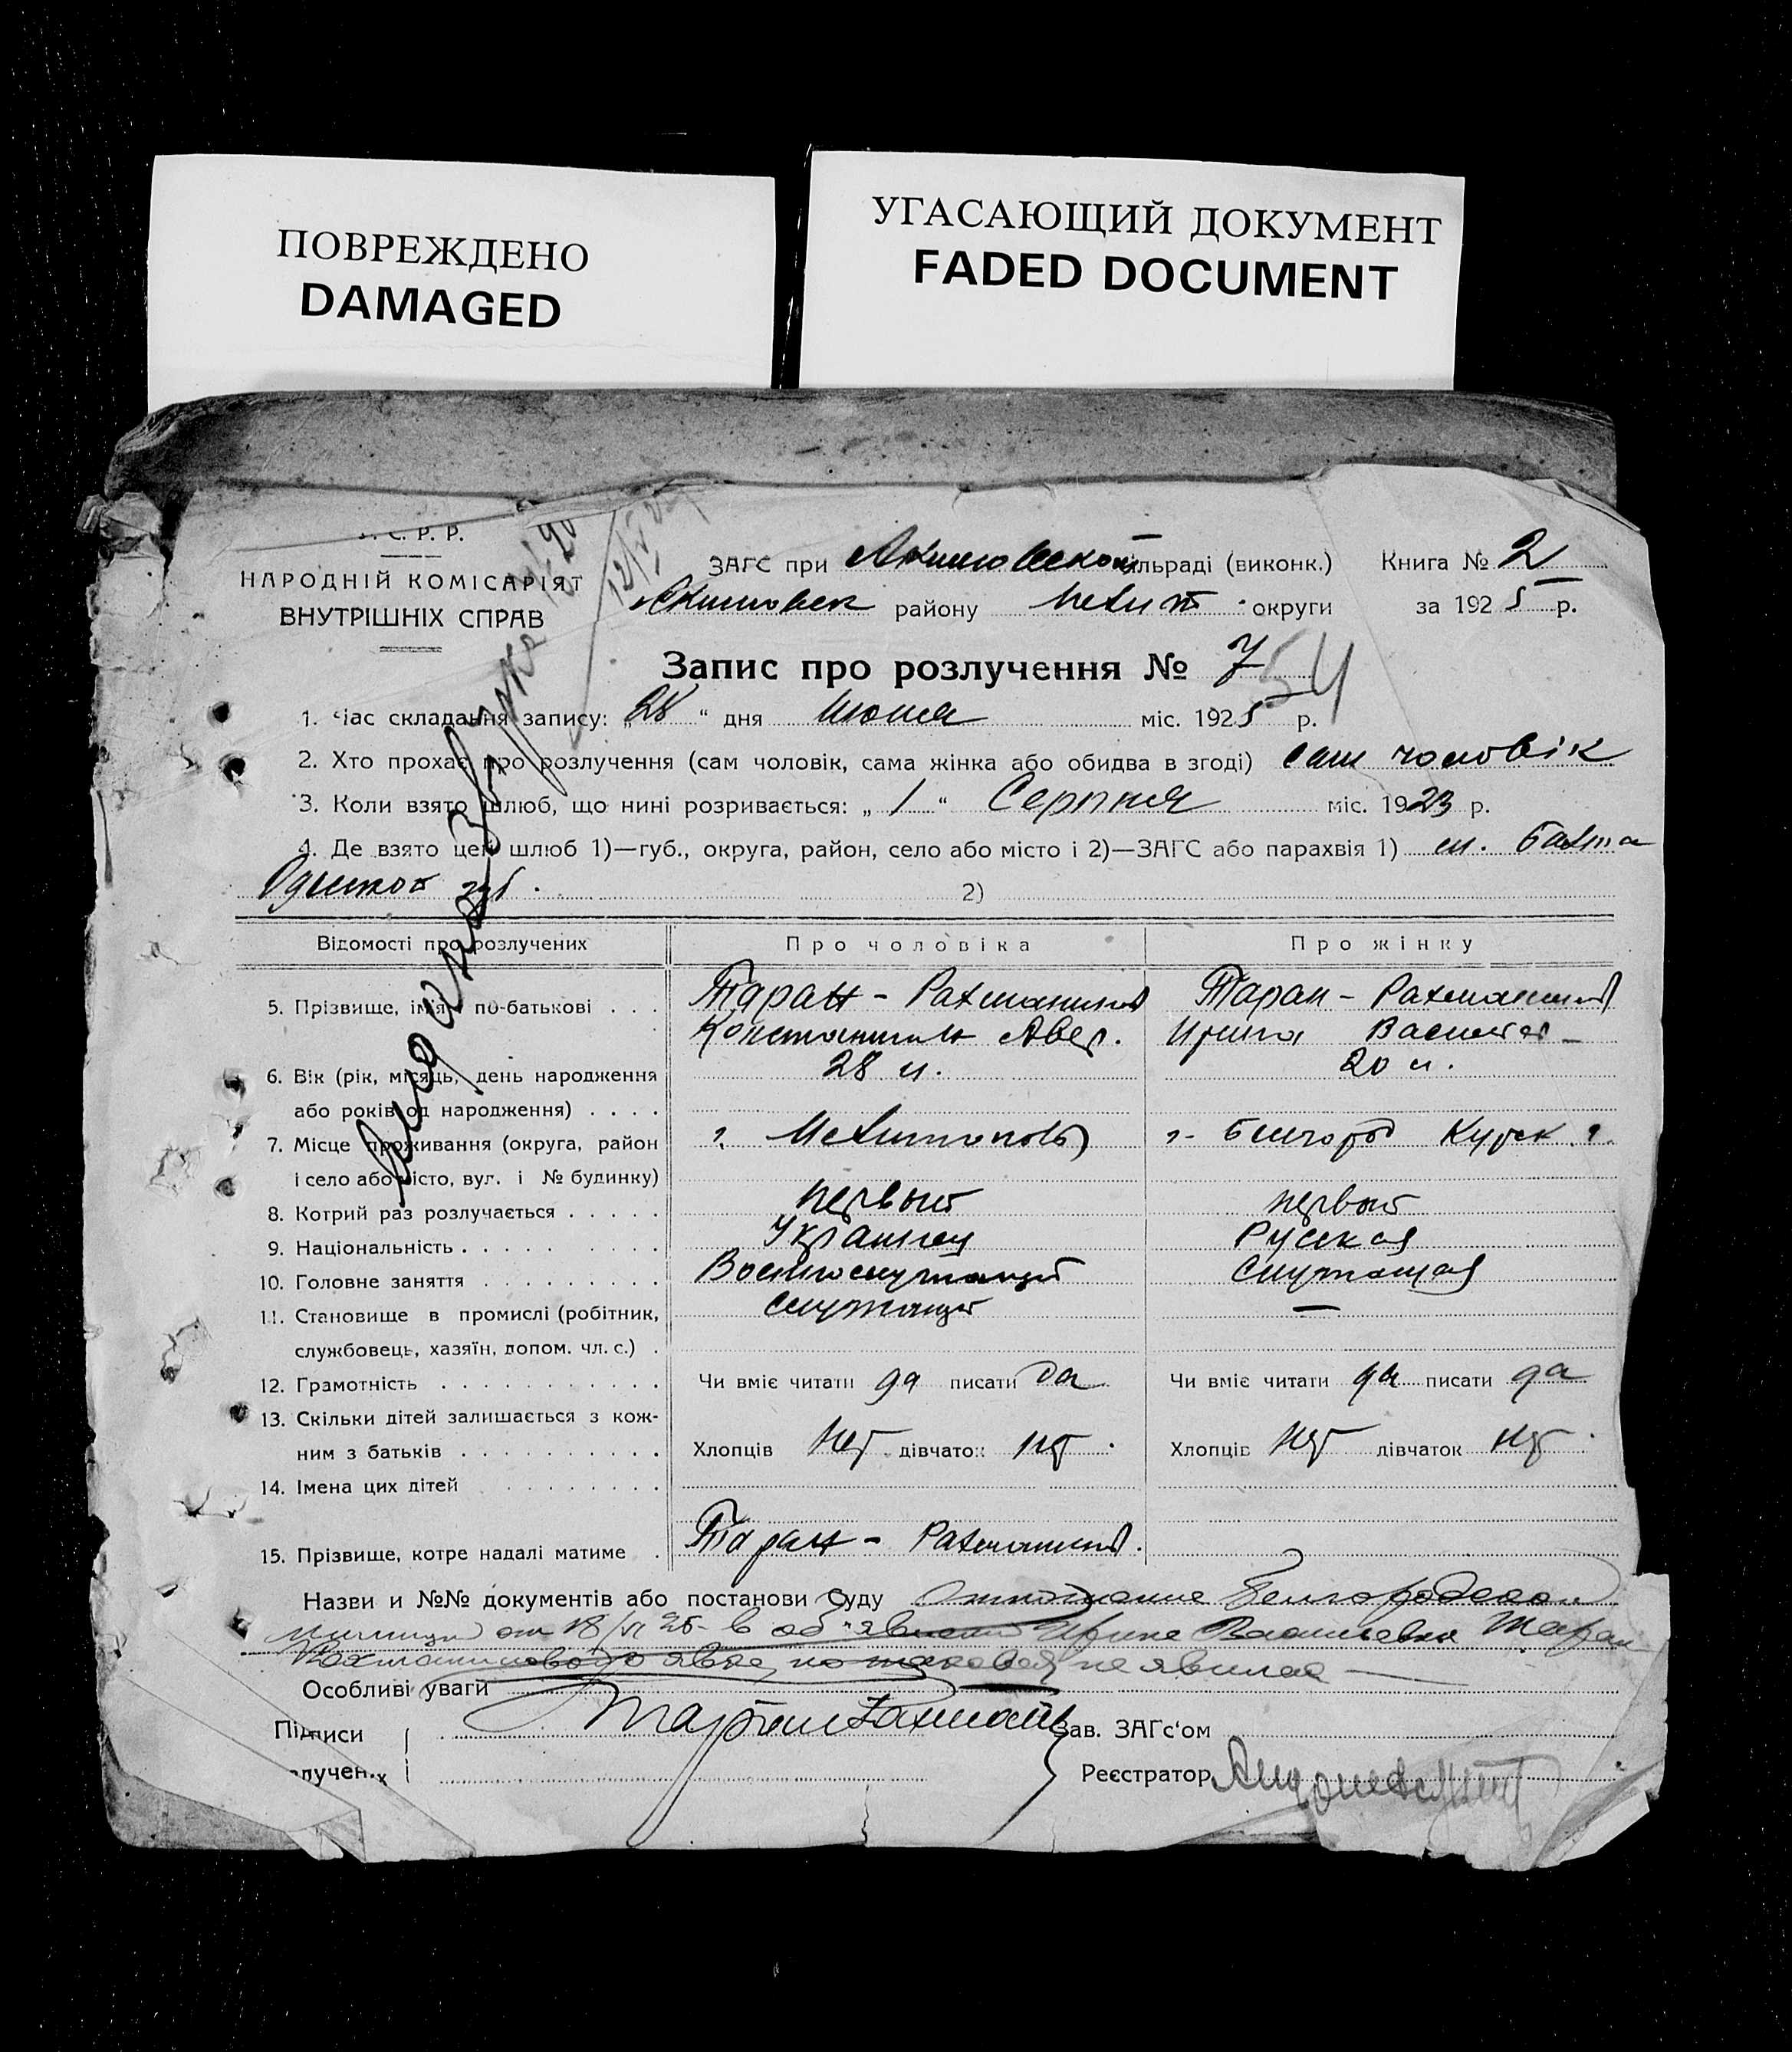 ПОВРЕЖДЕНО
DAMAGED
УГАСАЮЩИЙ ДОКУМЕНТ
FADED DOCUMENT
С. Р. Р.
НАРОДНІЙ КОМІСАРІЯТ
ВНУТРІШНІХ СПРАВ
ЗАГС при Акимовской ільраді (виконк.) Книга № 2
Акимовск району Мелит. округи за 1925 р.
Запис про розлучення № 7
54
1. Час складання запису: „28“ дня Июня міс. 1925 р.
2. Хто прохає про розлучення (сам чоловік, сама жінка або обидва в згоді) сам чоловік
3. Коли взято шлюб, що нині розривається: „1“ Серпня міс. 1923 р.
4. Де взято цей шлюб 1)—губ., округа, район, село або місто і 2)—ЗАГС або парахвія 1) ст. Балта
Одесской губ. 2)
Відомості про розлучених Про чоловіка Про жінку
5. Прізвище, ім'я, по-батькові . . . Таран - Рахманинов Таран - Рахманинов
Константин Авер. Ирина Васильев
6. Вік (рік, місяць, день народження 28 л. 20 л.
або років од народження) . . . .
7. Місце проживання (округа, район г. Мелитополь г. Белгород Курск. г.
і село або місто, вул. і № будинку)
8. Котрий раз розлучається . . . . . первый первый
9. Національність . . . . . . . . . Украинец Русская
10. Головне заняття . . . . . . . . . Военнослужащий Служащая
11. Становище в промислі (робітник, служащий —
службовець, хазяїн, допом. чл. с.) .
12. Грамотність . . . . . . . . . . . Чи вміє читати да писати да Чи вміє читати да писати да
13. Скільки дітей залишається з кож-
ним з батьків . . . . . . . . . . Хлопців нет дівчаток нет. Хлопців нет дівчаток нет.
14. Імена цих дітей . . . . . . . .
15. Прізвище, котре надалі матиме . Таран - Рахманинов.
Назви и №№ документів або постанови Суду Отношение Белгородской
милиции от 18/VI 25 в об'явлении Ирине Васильевне Таран
Рахманиновой о явке, но таковая не явилась —
Особливі уваги
Підписи Таран Рахман Зав. ЗАГс'ом
лучених Реєстратор